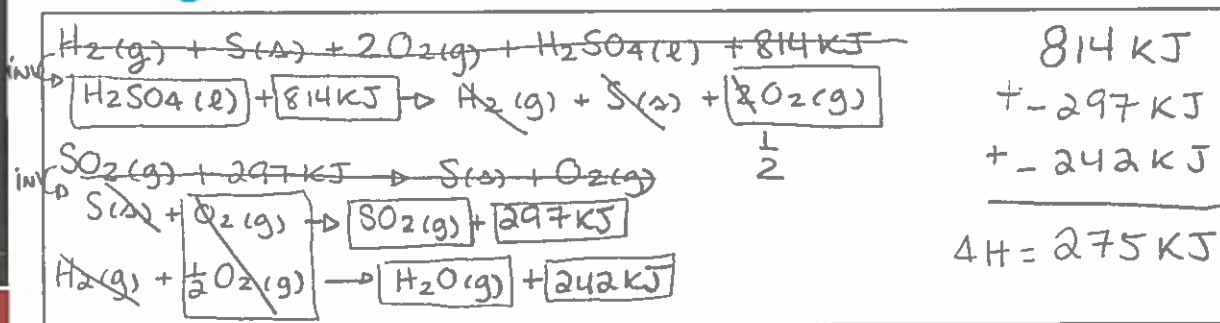 H2(g) + S(s) + 2O2(g) + H2SO4(l) + 814KJ
inv H2SO4(l) + 814KJ → H2(g) + S(s) + 2O2(g)
1/2
SO2(g) + 297KJ → S(s) + O2(g)
inv S(s) + O2(g) → SO2(g) + 297KJ
H2(g) + 1/2O2(g) → H2O(g) + 242KJ
814 KJ
+ - 297 KJ
+ - 242 KJ
ΔH = 275 KJ